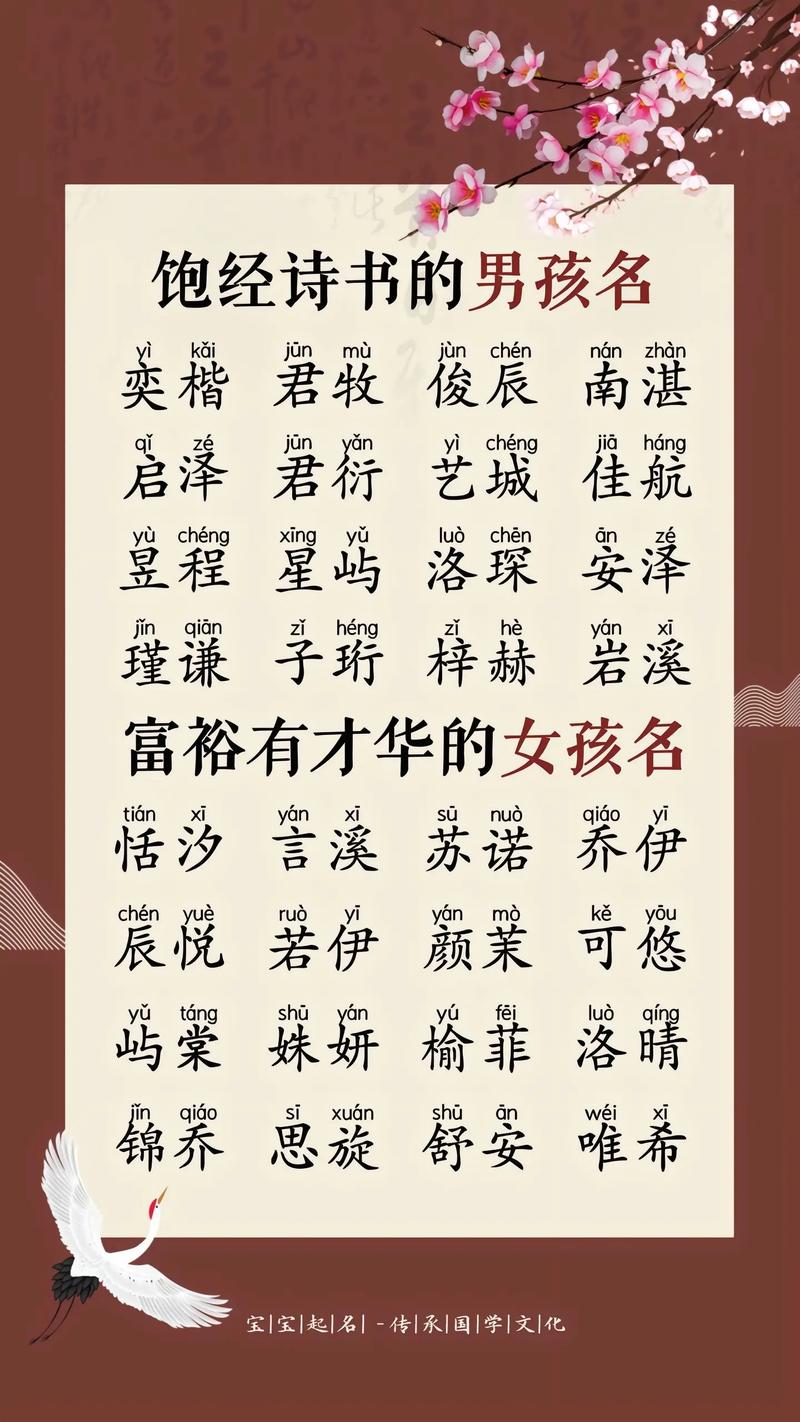 饱经诗书的男孩名
yì kǎi jūn mù jùn chén nán zhàn
奕楷 君牧 俊辰 南湛
qǐ zé jūn yǎn yì chéng jiā háng
启泽 君衍 艺城 佳航
yù chéng xīng yǔ luò chēn ān zé
昱程 星屿 洛琛 安泽
jǐn qiān zǐ héng zǐ hè yán xī
瑾谦 子珩 梓赫 岩溪
富裕有才华的女孩名
tián xī yán xī sū nuò qiáo yī
恬汐 言溪 苏诺 乔伊
chén yuè ruò yī yán mò kě yōu
辰悦 若伊 颜茉 可悠
yǔ táng shū yán yú fēi luò qíng
屿棠 姝妍 榆菲 洛晴
jǐn qiáo sī xuán shū ān wéi xī
锦乔 思旋 舒安 唯希
宝|宝|起|名| -传|承|国|学|文|化